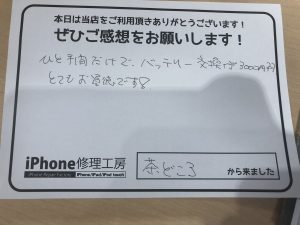 本日は当店をご利用頂きありがとうございます!
ぜひご感想をお願いします!
ひと手間だけで、バッテリー交換が3000円
とてもお得です
iPhone修理工房
iPhone Repair Factory
iPhone/iPad/iPod touch
茶どころ
から来ました